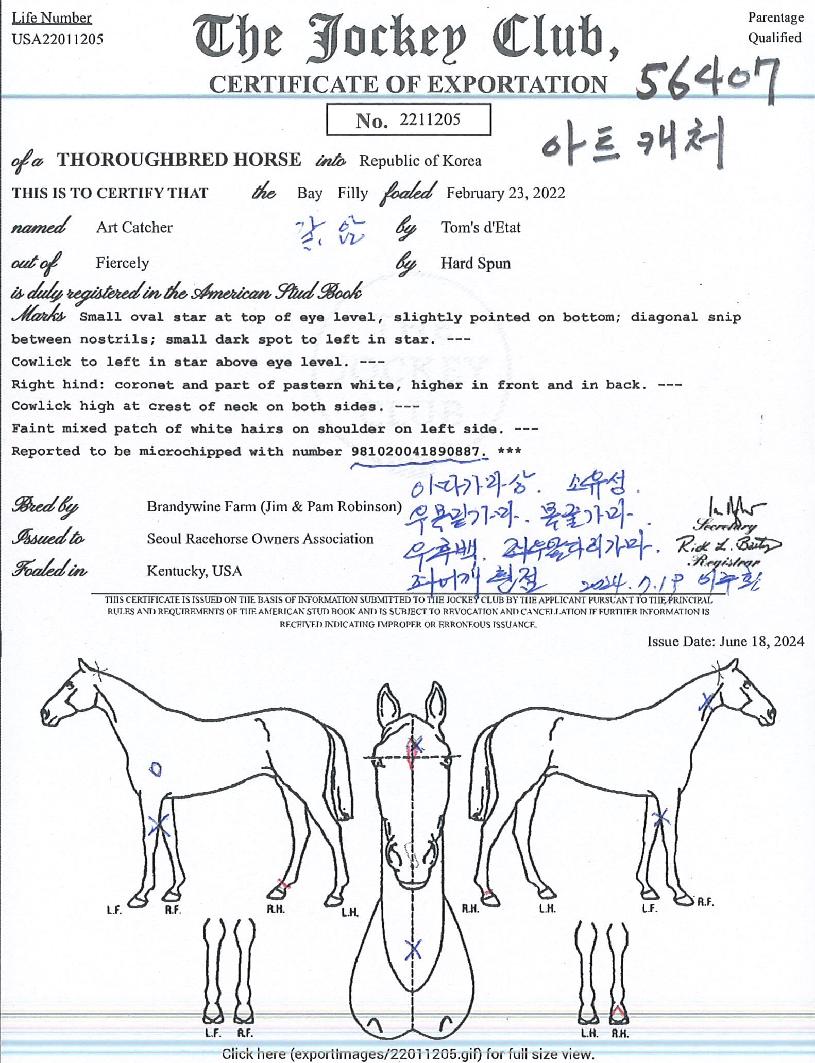 Life Number
USA22011205
Parentage
Qualified
The Jockey Club,
CERTIFICATE OF EXPORTATION
56407
No. 2211205
아트캐처
of a THOROUGHBRED HORSE into Republic of Korea
THIS IS TO CERTIFY THAT the Bay Filly foaled February 23, 2022
named Art Catcher 갈, 암 by Tom's d'Etat
out of Fiercely by Hard Spun
is duly registered in the American Stud Book
Marks Small oval star at top of eye level, slightly pointed on bottom; diagonal snip
between nostrils; small dark spot to left in star. ---
Cowlick to left in star above eye level. ---
Right hind: coronet and part of pastern white, higher in front and in back. ---
Cowlick high at crest of neck on both sides. ---
Faint mixed patch of white hairs on shoulder on left side. ---
Reported to be microchipped with number 981020041890887. ***
이다가마상. 소유성.
Bred by Brandywine Farm (Jim & Pam Robinson) 우목밑가마. 목끝가마.
Secretary
Issued to Seoul Racehorse Owners Association 우후백. 좌우앞다리가마.
Rick L. Bailey
Registrar
Foaled in Kentucky, USA 좌어깨 흰점 2024.7.19
THIS CERTIFICATE IS ISSUED ON THE BASIS OF INFORMATION SUBMITTED TO THE JOCKEY CLUB BY THE APPLICANT PURSUANT TO THE PRINCIPAL
RULES AND REQUIREMENTS OF THE AMERICAN STUD BOOK AND IS SUBJECT TO REVOCATION AND CANCELLATION IF FURTHER INFORMATION IS
RECEIVED INDICATING IMPROPER OR ERRONEOUS ISSUANCE.
Issue Date: June 18, 2024
L.F. R.F. R.H. L.H. R.H. L.H. L.F. R.F.
L.F. R.F. L.H. R.H.
Click here (exportimages/22011205.gif) for full size view.